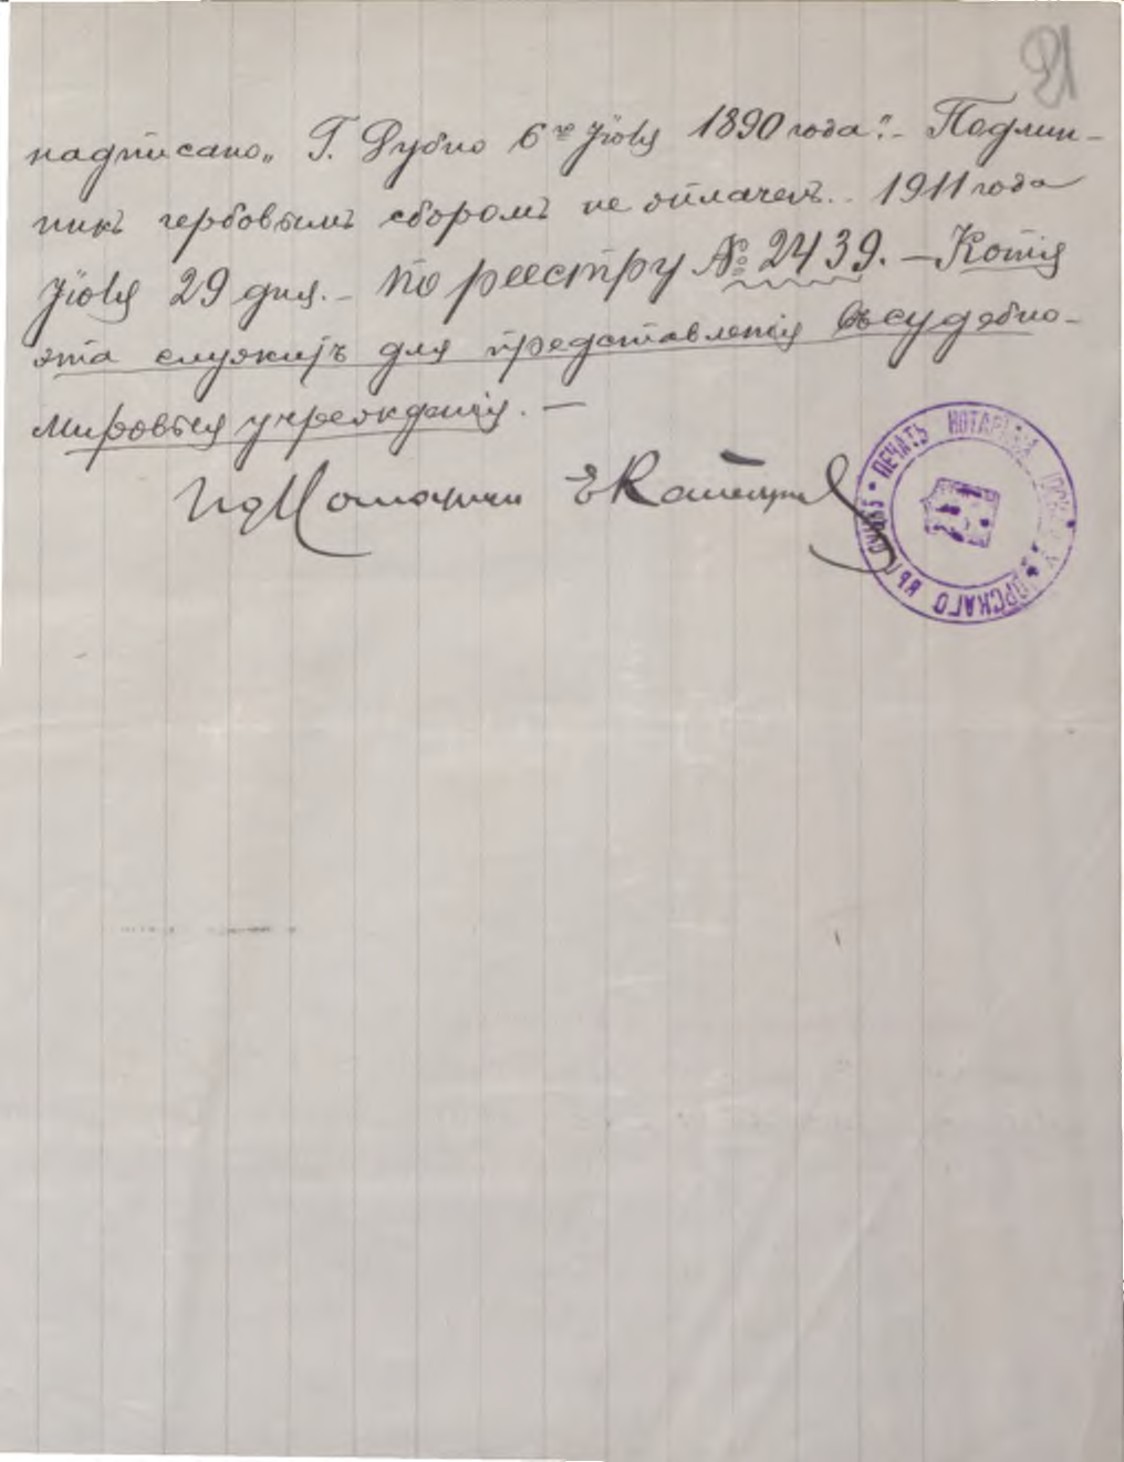 21
надписано „Г. Дубно 6го Іюля 1890 года". - Подлин-
никъ гербовымъ сборомъ не оплаченъ. - 1911 года
Іюля 29 дня. - По реестру № 2439. - Копія
эта служитъ для представленія въ судебно-
мировыя учрежденія. -
ПЕЧАТЬ НОТАРІУСА